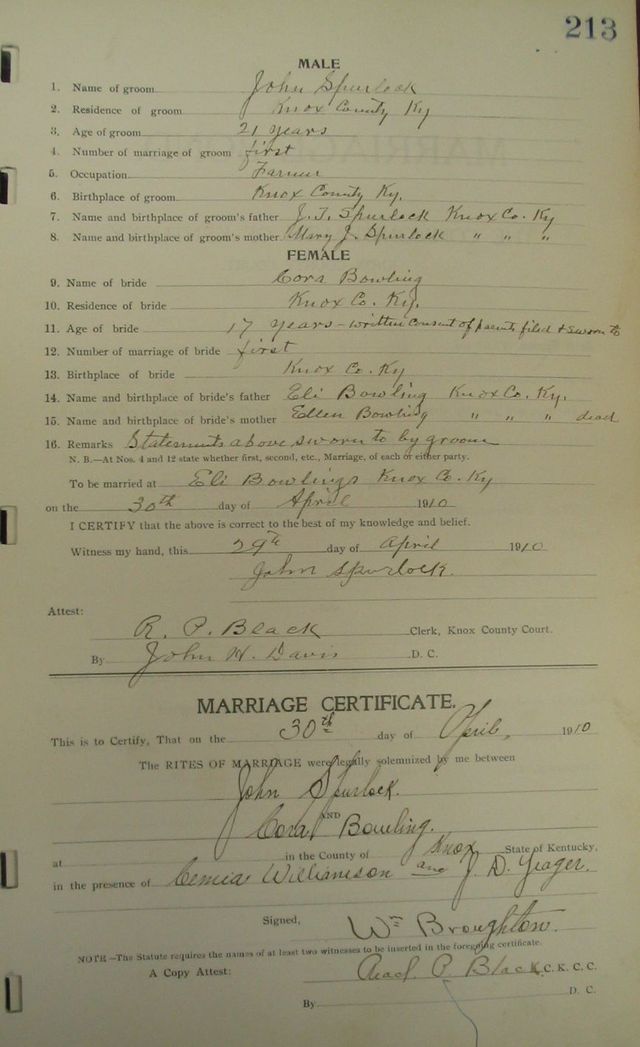 213
MALE
1. Name of groom John Spurlock
2. Residence of groom Knox County Ky
3. Age of groom 21 years
4. Number of marriage of groom first
5. Occupation Farmer
6. Birthplace of groom Knox County Ky.
7. Name and birthplace of groom's father J. T. Spurlock Knox Co. Ky
8. Name and birthplace of groom's mother Mary J. Spurlock " " "
FEMALE
9. Name of bride Cora Bowling
10. Residence of bride Knox Co. Ky.
11. Age of bride 17 years - written consent of parents filed & sworn to
12. Number of marriage of bride first
13. Birthplace of bride Knox Co. Ky
14. Name and birthplace of bride's father Eli Bowling Knox Co. Ky.
15. Name and birthplace of bride's mother Ellen Bowling " " " dead
16. Remarks Statements above sworn to by groom
N. B.—At Nos. 4 and 12 state whether first, second, etc., Marriage, of each or either party.
To be married at Eli Bowlings Knox Co. Ky
on the 30th day of April 1910
I CERTIFY that the above is correct to the best of my knowledge and belief.
Witness my hand, this 29th day of April 1910
John Spurlock.
Attest:
R. P. Black Clerk, Knox County Court.
By John H. Davis D. C.
MARRIAGE CERTIFICATE.
This is to Certify, That on the 30th day of April, 1910
The RITES OF MARRIAGE were legally solemnized by me between
John Spurlock.
AND
Cora Bowling.
at in the County of Knox State of Kentucky,
in the presence of Williamson and J. D. Yeager.
Signed, Wm Broughton.
NOTE—The Statute requires the names of at least two witnesses to be inserted in the foregoing certificate.
A Copy Attest: Read P. Black C. K. C. C.
By D. C.